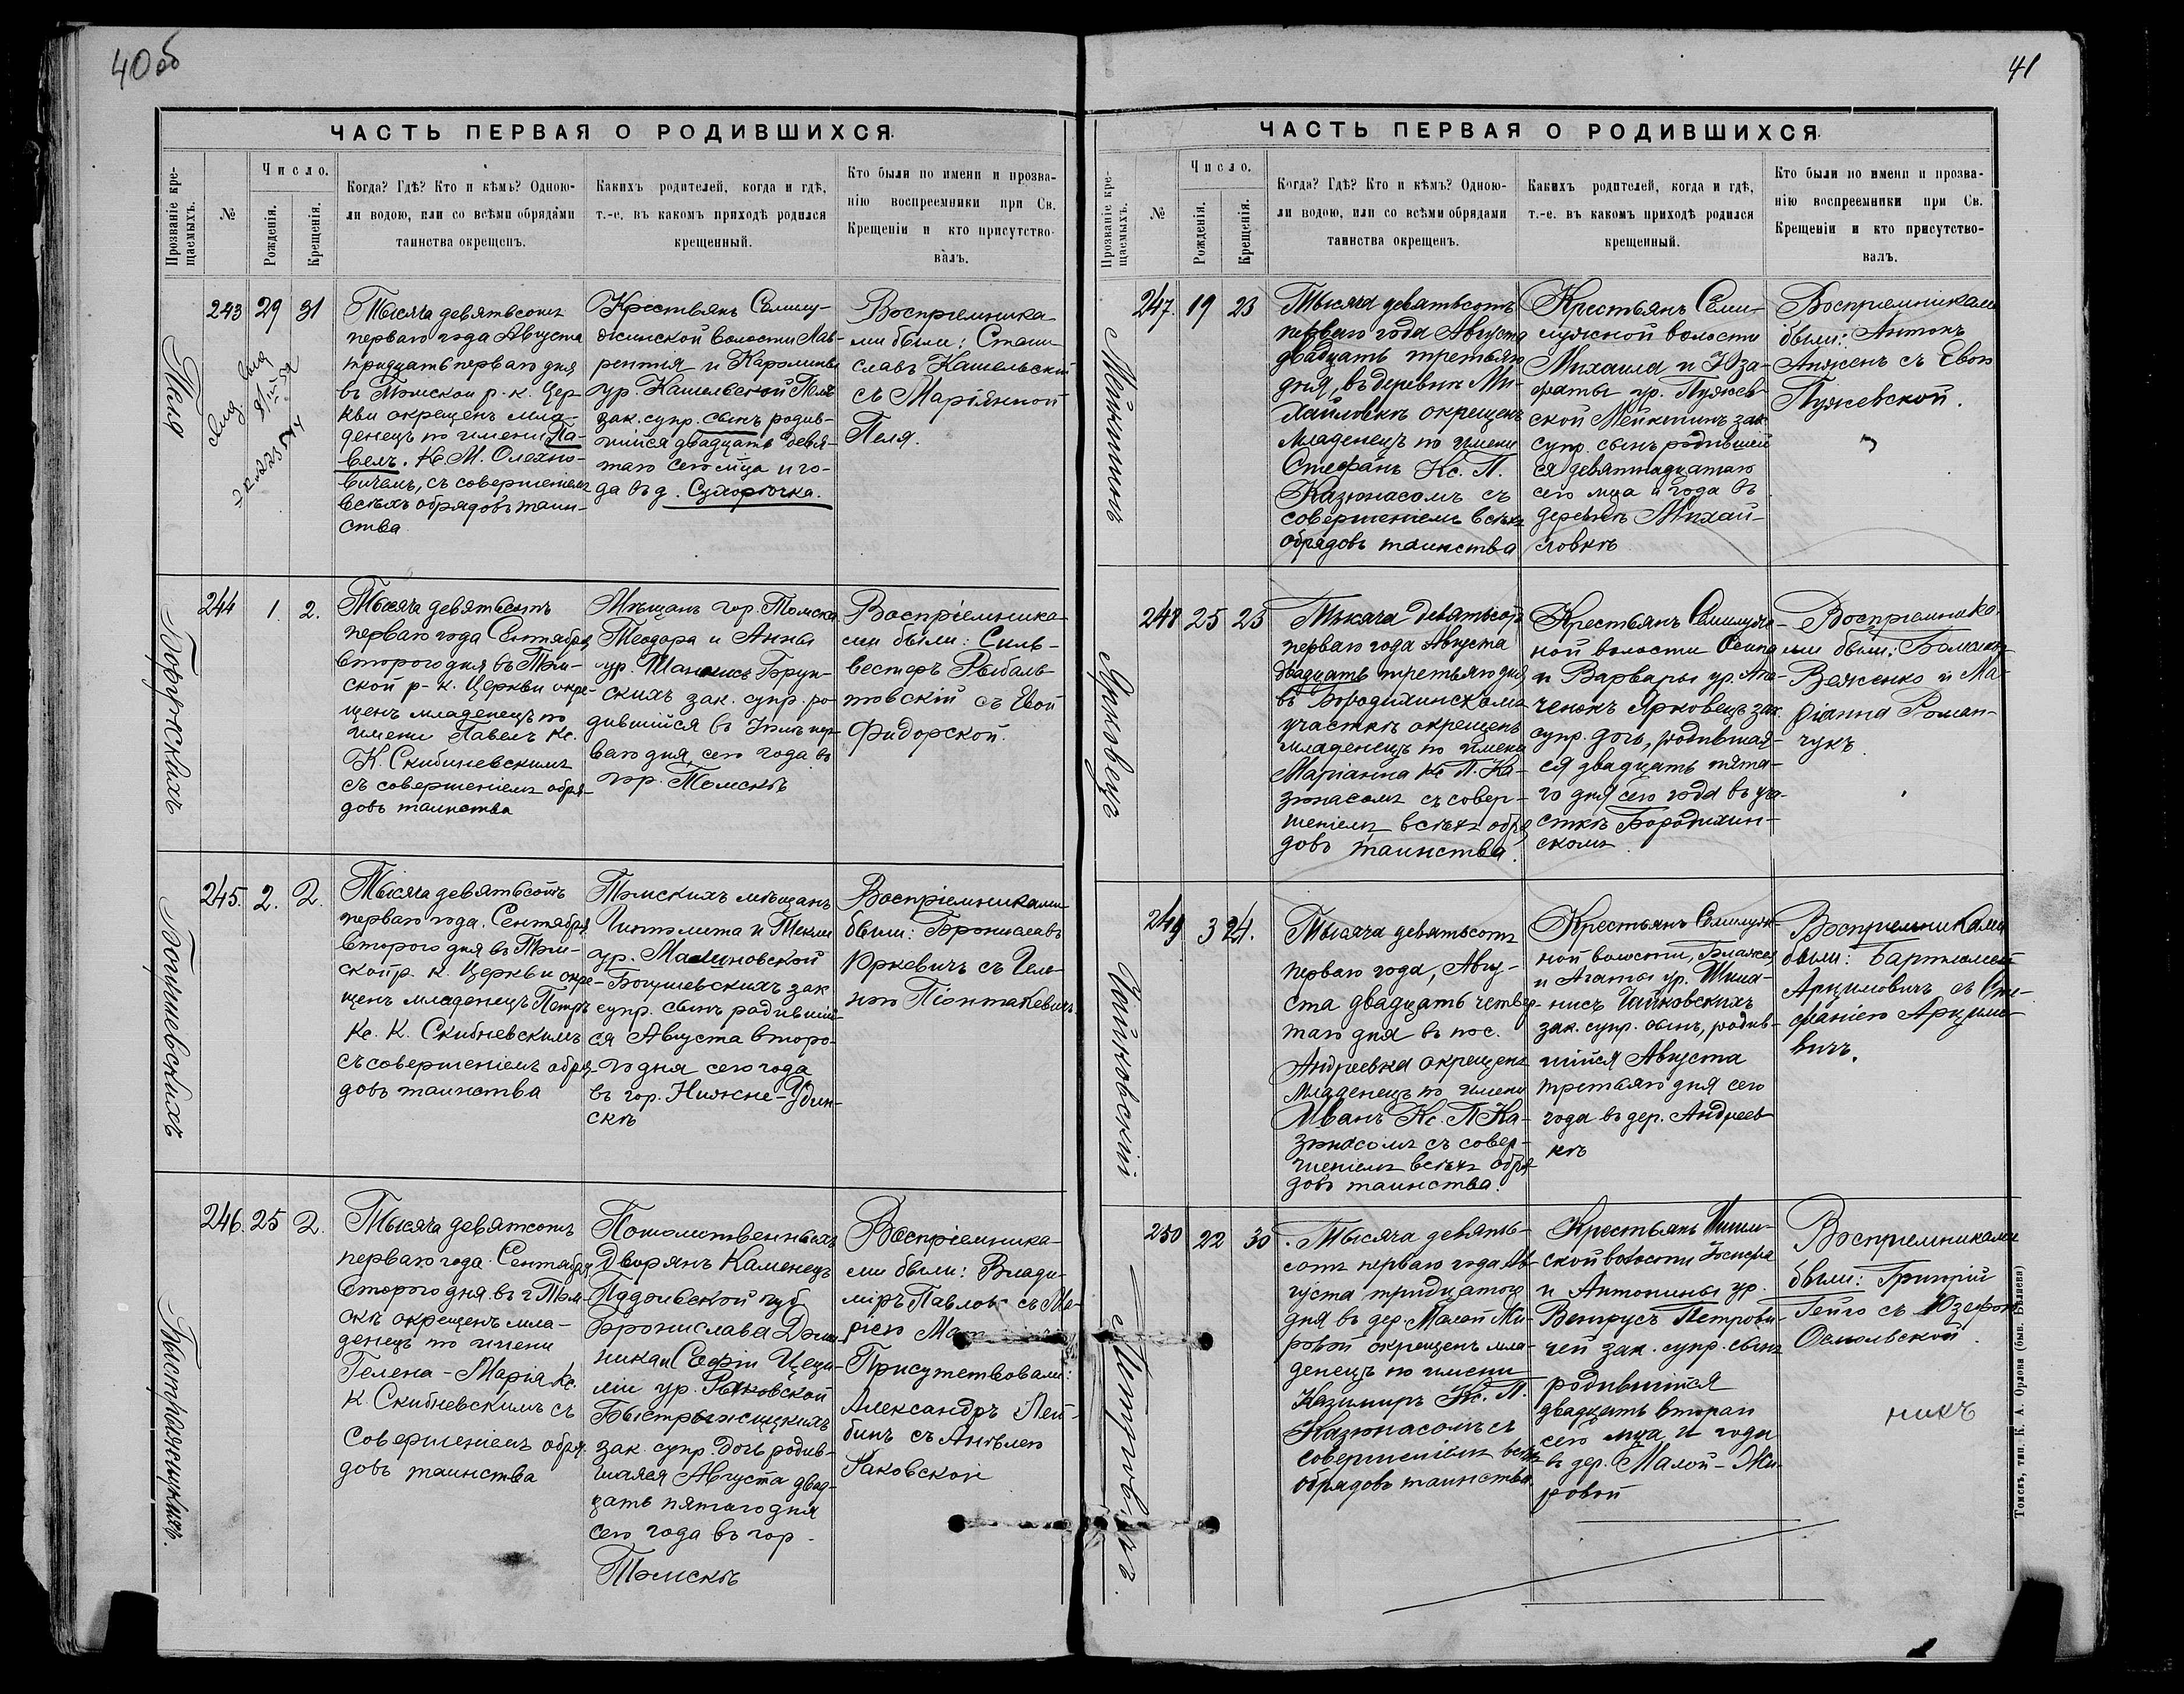 40об
ЧАСТЬ ПЕРВАЯ О РОДИВШИХСЯ.
Прозваніе кре-
щаемыхъ.
№
Число.
Рожденія.
Крещенія.
Когда? Гдѣ? Кто и кѣмъ? Одною-
ли водою, или со всѣми обрядами
таинства окрещенъ.
Какихъ родителей, когда и гдѣ,
т.-е. въ какомъ приходѣ родился
крещенный.
Кто были по имени и прозва-
нію воспреемники при Св.
Крещеніи и кто присутство-
валъ.
Пеля
243 29 31
Тысяча девятьсотъ
перваго года Августа
тридцать перваго дня
въ Томской р. к. Цер-
кви окрещенъ мла-
денецъ по имени Па-
велъ. Кс. М. Олехно-
вичемъ, съ совершеніемъ
всѣхъ обрядовъ таин-
ства
Крестьянъ Семилу-
жинской волости Лав-
рентія и Каролины
ур. Кашельской Пеля
зак. супр. сынъ родив-
шійся двадцать девя-
таго сего мца и го-
да въ д. Сухорѣчка.
Воспріемника-
ми были: Стани
славъ Кашельскій
съ Маріянной
Пеля.
Боргускихъ
244 1. 2.
Тысяча девятьсотъ
перваго года Сентября
второго дня въ Том-
ской р-к. Церкви окре-
щенъ младенецъ по
имени Павелъ Кс.
К. Скибневскимъ
съ совершеніемъ обря-
довъ таинства
Мѣщанъ гор. Томска
Теодора и Анны
ур.
скихъ зак. супр. ро-
дившійся въ
ваго дня, сего года въ
гор. Томскѣ
Воспріемника-
ми были: Силь-
вестеръ Рыбаль
товскій съ Евой
Фидорской.
Богушевскихъ
245. 2. 2.
Тысяча девятьсотъ
перваго года. Сентября
второго дня въ Том-
ской р. к. Церкви окре-
щенъ младенецъ Петръ
Кс. К. Скибневскимъ
съ совершеніемъ обря-
довъ таинства
Томскихъ мѣщанъ
Ипполита и Теклы
ур. Малиновской
Богушевскихъ зак
супр. сынъ родившій-
ся Августа второ-
го дня сего года
въ гор. Нижне-Удин-
скѣ
Воспріемниками
были: Брониславъ
Юркевичъ съ Геле-
ною Піонткевичъ.
Быстржицкихъ.
246. 25 2.
Тысяча девятсотъ
перваго года. Сентября
второго дня въ г Том-
скѣ окрещенъ мла-
денецъ по имени
Гелена-Марія Кс.
К. Скибневскимъ съ
совершеніемъ обря-
довъ таинства
Потомственныхъ
Дворянъ Каменецъ
Подольской губ
Бронислава Доми
ника и Софіи Цеци-
ліи ур. Раковской
Быстржицкихъ
зак. супр. дочь родив-
шаяся Августа двад-
цать пятаго дня
сего года въ гор.
Томскѣ
Воспріемника-
ми были: Влади-
міръ Павловъ съ Ма-
ріею
Присутствовали:
Александръ Лей-
бинъ съ Анѣлею
Раковской
41
ЧАСТЬ ПЕРВАЯ О РОДИВШИХСЯ.
Прозваніе кре-
щаемыхъ.
№
Число.
Рожденія.
Крещенія.
Когда? Гдѣ? Кто и кѣмъ? Одною-
ли водою, или со всѣми обрядами
таинства окрещенъ.
Какихъ родителей, когда и гдѣ,
т.-е. въ какомъ приходѣ родился
крещенный.
Кто были по имени и прозва-
нію воспреемники при Св.
Крещеніи и кто присутство-
валъ.
Мейнтинъ
247. 19 23
Тысяча девятьсотъ
перваго года Августа
двадцать третьяго
дня, въ деревни Ми-
хайловкѣ окрещенъ
младенецъ по имени
Стефанъ Кс. П.
Казюнасомъ съ
совершеніемъ всѣхъ
обрядовъ таинства
Крестьянъ Семи-
лужной волости
Михаила и Юза-
фаты ур. Пужев-
ской Мейнтинъ зак.
супр. сынъ родившій
ся девятнадцатаго
сего мца и года въ
деревнѣ Михай-
ловкѣ
Воспріемниками
были: Антонъ
съ Евой
Пужевской.
Ярковецъ
248 25 23
Тысяча девятьсотъ
перваго года Августа
двадцать третьяго дня
въ Бородихинскомъ
участкѣ окрещенъ
младенецъ по имени
Маріанна Кс П. Ка-
зюнасомъ съ совер-
шеніемъ всѣхъ обря
довъ таинства.
Крестьянъ Семилуж-
ной волости Осипа
и Варвары ур. Апа-
ченокъ Ярковецъ зак.
супр. дочь, родившая-
ся двадцать пята-
го дня сего года въ уча-
сткѣ Бородихин-
скомъ.
Воспріемника-
ми были:
Веженко и Ма-
ріанна Роман-
чукъ.
Чайковскій
249 3 24.
Тысяча девятьсотъ
перваго года, Авгу-
ста двадцать четвер-
таго дня въ пос.
Андреевка окрещенъ
младенецъ по имени
Иванъ Кс. П Ка-
зюнасомъ съ совер-
шеніемъ всѣхъ обря
довъ таинства.
Крестьянъ Семилуж-
ной волости, Блажея
и Агаты ур. Шима-
нисъ Чайковскихъ
зак. супр. сынъ, родив-
шійся Августа
третьяго дня сего
года въ дер. Андреев
кѣ
Воспріемниками
были: Бартломей
Арцимовичъ съ Сте-
фаніею Арцимо-
вичъ.
Петровичъ.
250 22 30
Тысяча девять-
сотъ перваго года Ав-
густа тридцатаго
дня въ дер. Малой Жи-
ровой окрещенъ мла-
денецъ по имени
Казимиръ Кс. П.
Казюнасомъ съ
совершеніемъ всѣхъ
обрядовъ таинства.
Крестьянъ Ишим-
ской волости Іосифа
и Антонины ур.
Венгрусъ Петрови-
чей зак. супр. сынъ
родившійся
двадцать втораго
сего мца и года
въ дер. Малой-Жи-
ровой
Воспріемниками
были: Григорій
Гейго съ Юзефою
Осмольской.
никъ
Томскъ, тип. К. А. Орлова (быв. Валѣева)